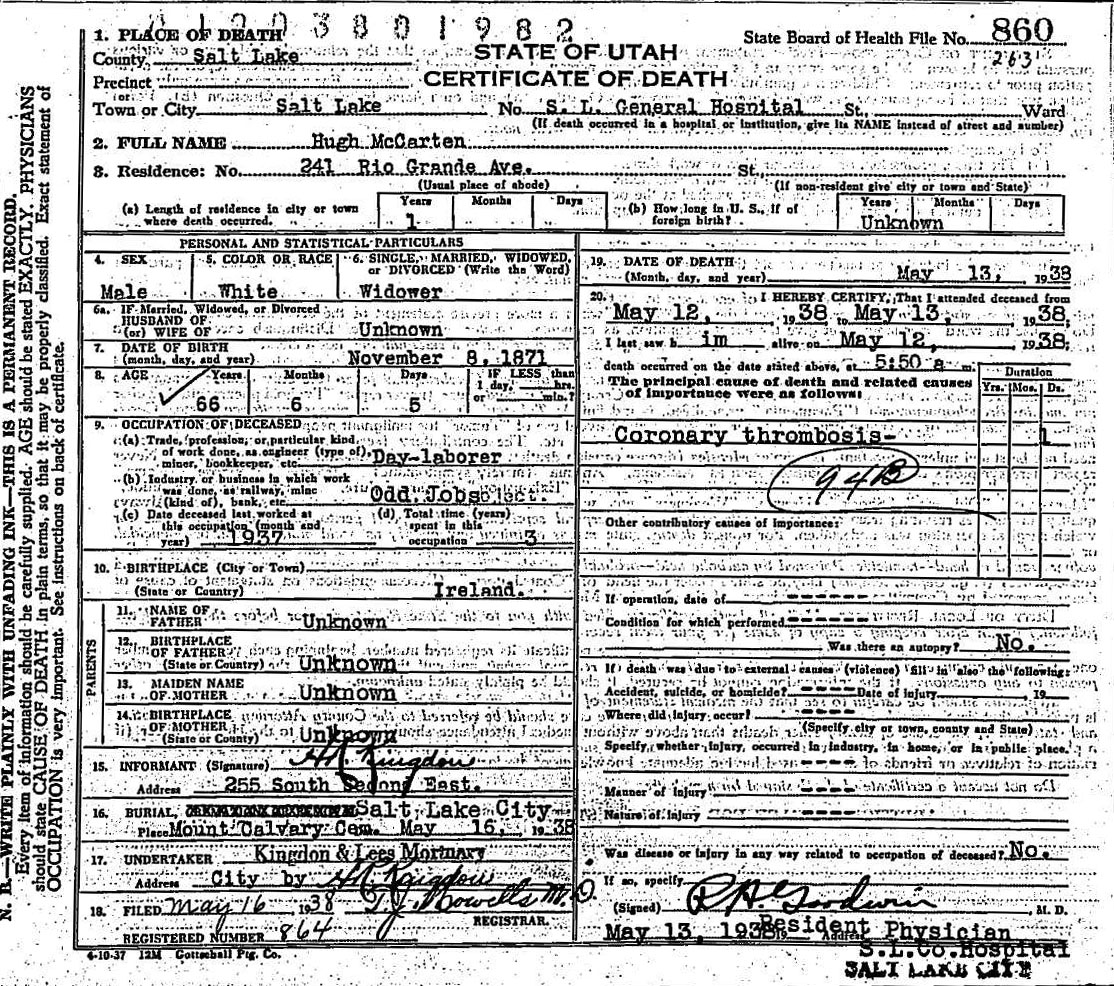 0120380 1982
1. PLACE OF DEATH
State Board of Health File No. 860
263
County, Salt Lake
STATE OF UTAH
Precinct
CERTIFICATE OF DEATH
Town or City Salt Lake No. S. L. General Hospital St. Ward
(If death occurred in a hospital or institution, give its NAME instead of street and number)
2. FULL NAME Hugh McCarten
3. Residence: No. 241 Rio Grande Ave. St.
(Usual place of abode)
(If non-resident give city or town and State)
(a) Length of residence in city or town where death occurred. Years 1 Months Days
(b) How long in U. S., if of foreign birth? Years Unknown Months Days
PERSONAL AND STATISTICAL PARTICULARS
4. SEX 5. COLOR OR RACE 6. SINGLE, MARRIED, WIDOWED, or DIVORCED (Write the Word)
Male White Widower
6a. IF Married, Widowed, or Divorced
HUSBAND OF
(or) WIFE OF Unknown
7. DATE OF BIRTH
(month, day, and year) November 8, 1871
8. AGE Years Months Days IF LESS than
1 day, hrs.
or min.?
66 6 5
9. OCCUPATION OF DECEASED
(a) Trade, profession, or particular kind
of work done, as engineer (type of),
miner, bookkeeper, etc. Day-laborer
(b) Industry or business in which work
was done, as railway, mine
(kind of), bank, etc. Odd Jobs
(c) Date deceased last worked at
this occupation (month and
year) 1937
(d) Total time (years)
spent in this
occupation 3
10. BIRTHPLACE (City or Town)
(State or Country) Ireland.
PARENTS
11. NAME OF
FATHER Unknown
12. BIRTHPLACE
OF FATHER
(State or Country) Unknown
13. MAIDEN NAME
OF MOTHER Unknown
14. BIRTHPLACE
OF MOTHER
(State or Country) Unknown
15. INFORMANT (Signature) H R Kingdon
Address 255 South Second East.
16. BURIAL, Salt Lake City
Place Mount Calvary Cem. May 16, 1938
17. UNDERTAKER Kingdon & Lees Mortuary
Address City by H R Kingdon
18. FILED May 16 1938 T. J. Howells M. D.
REGISTRAR.
REGISTERED NUMBER 864
4-10-37 12M Gottschall Ptg. Co.
19. DATE OF DEATH
(Month, day, and year) May 13, 1938
20. I HEREBY CERTIFY, That I attended deceased from
May 12, 1938, to May 13, 1938;
I last saw h im alive on May 12, 1938;
death occurred on the date stated above, at 5:50 a m.
The principal cause of death and related causes
of importance were as follows:
Duration
Yrs. Mos. Ds.
Coronary thrombosis- 1
94B
Other contributory causes of importance:
If operation, date of ------
Condition for which performed ------
Was there an autopsy? No.
If death was due to external causes (violence) fill in also the following:
Accident, suicide, or homicide? ---- Date of injury 19
Where did injury occur? ----
(Specify city or town, county and State)
Specify, whether injury, occurred in industry, in home, or in public place.
----
Manner of Injury ----
Nature of injury ----
Was disease or injury in any way related to occupation of deceased? No.
If so, specify
(Signed) R H Goodwin M. D.
May 13, 1938 19 Address Resident Physician
S.L.Co.Hospital
SALT LAKE CITY
N. B.—WRITE PLAINLY WITH UNFADING INK—THIS IS A PERMANENT RECORD.
Every item of information should be carefully supplied. AGE should be stated EXACTLY. PHYSICIANS
should state CAUSE OF DEATH in plain terms, so that it may be properly classified. Exact statement of
OCCUPATION is very important. See instructions on back of certificate.